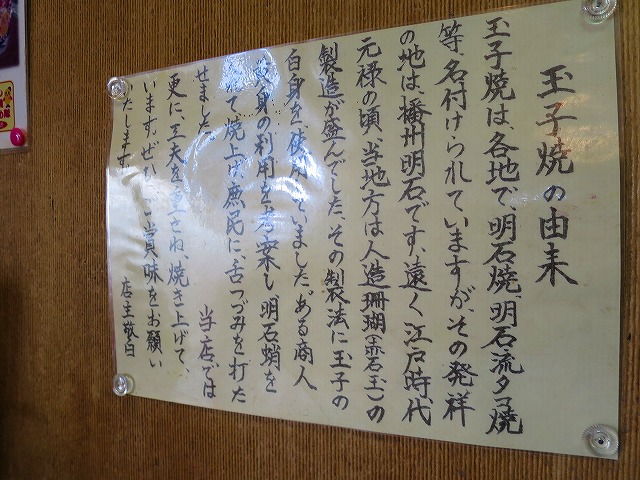 玉子焼の由来
玉子焼は、各地で、明石焼、明石流タコ焼
等、名付けられていますが、その発祥
の地は、播州明石です。遠く江戸時代
元禄の頃、当地方は人造珊瑚(赤石玉)の
製造が盛んでした、その製法に玉子の
白身を使用していました。ある商人
身の利用を考案し明石蛸を
て焼上げ、庶民に、舌つづみを打た
せました。 当店では
更に、工夫を重さね、焼き上げて、
います、ぜひご賞味をお願い
いたします。 店主敬白